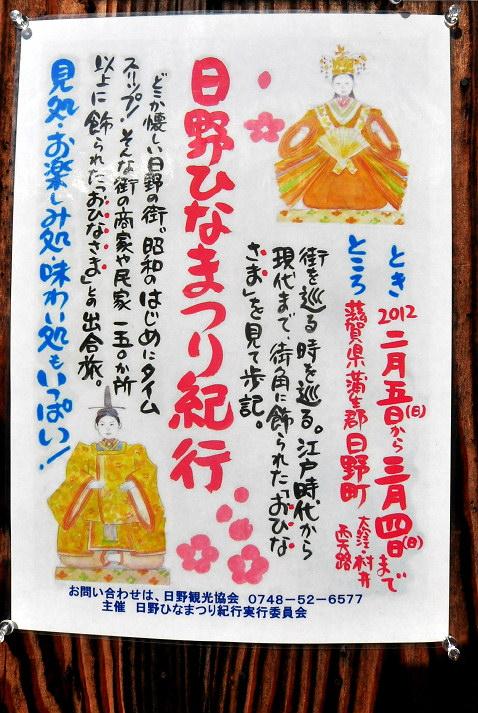 とき 2012 二月五日(日)から三月四日(日)まで
ところ 滋賀県蒲生郡日野町 大窪・村井
西大路
街を巡る 時を巡る。江戸時代から
現代まで、街角に飾られた「おひな
さま」を見て歩記。
日野ひなまつり紀行
どこか懐しい日野の街。昭和のはじめにタイム
スリップ!そんな街の商家や民家一五〇か所
以上に飾られた「おひなさま」との出合旅。
見処・お楽しみ処・味わい処もいっぱい!
お問い合わせは、日野観光協会 0748-52-6577
主催 日野ひなまつり紀行実行委員会